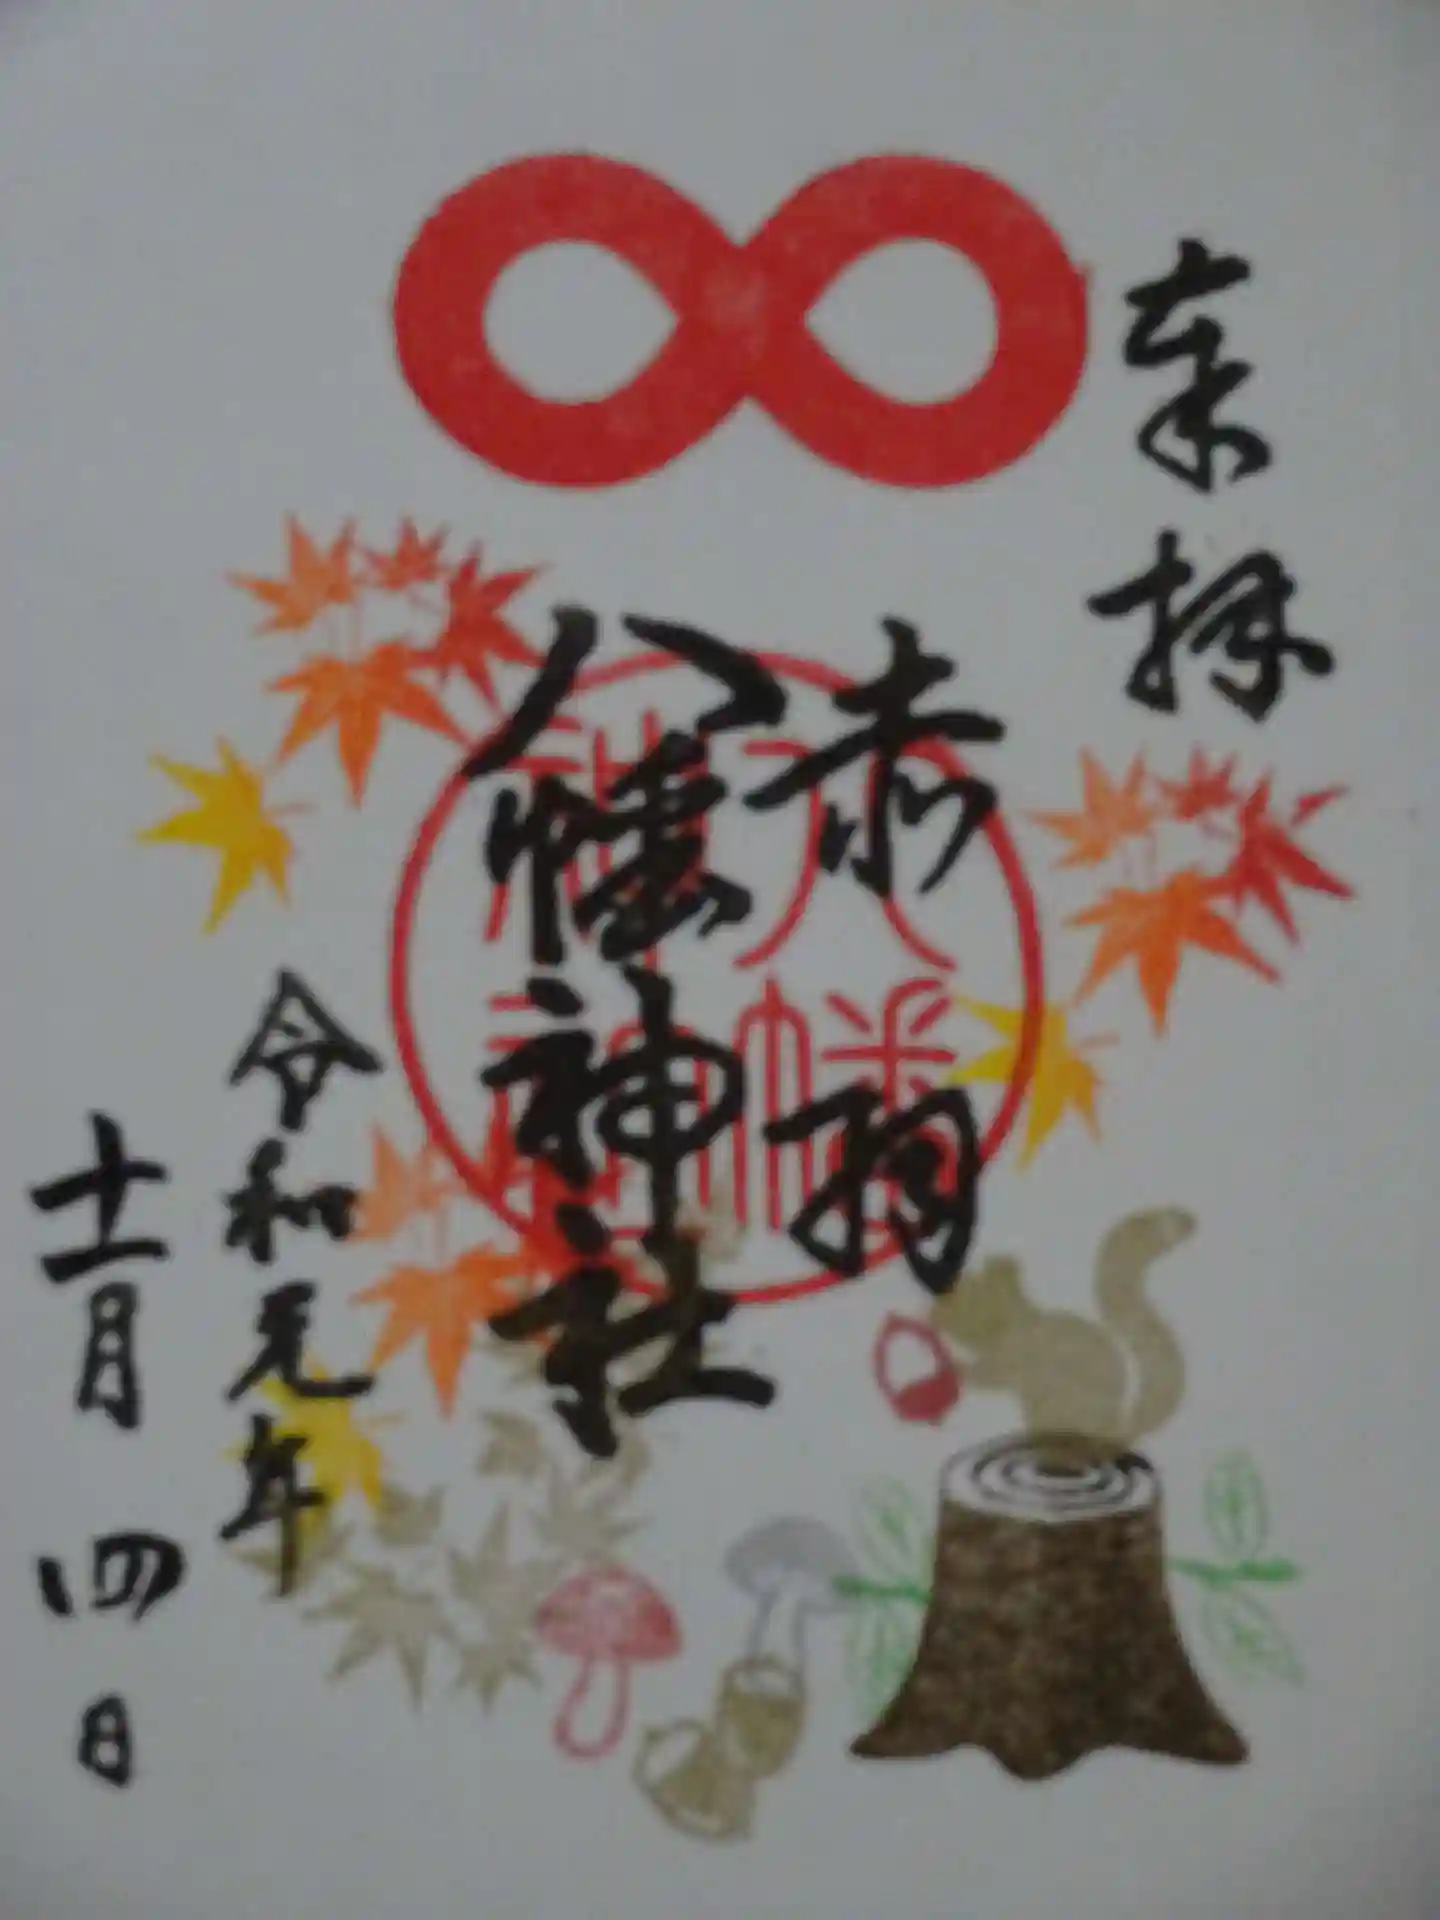 奉拝
赤羽
八幡神社
八幡
神社
令和元年
十一月四日